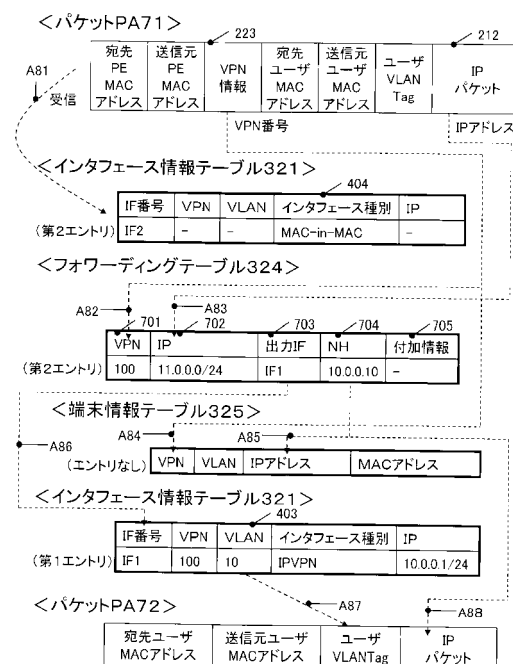 <パケットPA71>
223
212
A81
受信
宛先
PE
MAC
アドレス
送信元
PE
MAC
アドレス
VPN
情報
宛先
ユーザ
MAC
アドレス
送信元
ユーザ
MAC
アドレス
ユーザ
VLAN
Tag
IP
パケット
VPN番号
IPアドレス
<インタフェース情報テーブル321>
404
IF番号 VPN VLAN インタフェース種別 IP
(第2エントリ) IF2 - - MAC-in-MAC -
<フォワーディングテーブル324>
A82 A83
701 702 703 704 705
VPN IP 出力IF NH 付加情報
(第2エントリ) 100 11.0.0.0/24 IF1 10.0.0.10 -
<端末情報テーブル325>
A86 A84 A85
(エントリなし) VPN VLAN IPアドレス MACアドレス
<インタフェース情報テーブル321>
403
IF番号 VPN VLAN インタフェース種別 IP
(第1エントリ) IF1 100 10 IPVPN 10.0.0.1/24
<パケットPA72>
A87 A88
宛先ユーザ
MACアドレス
送信元ユーザ
MACアドレス
ユーザ
VLANTag
IP
パケット